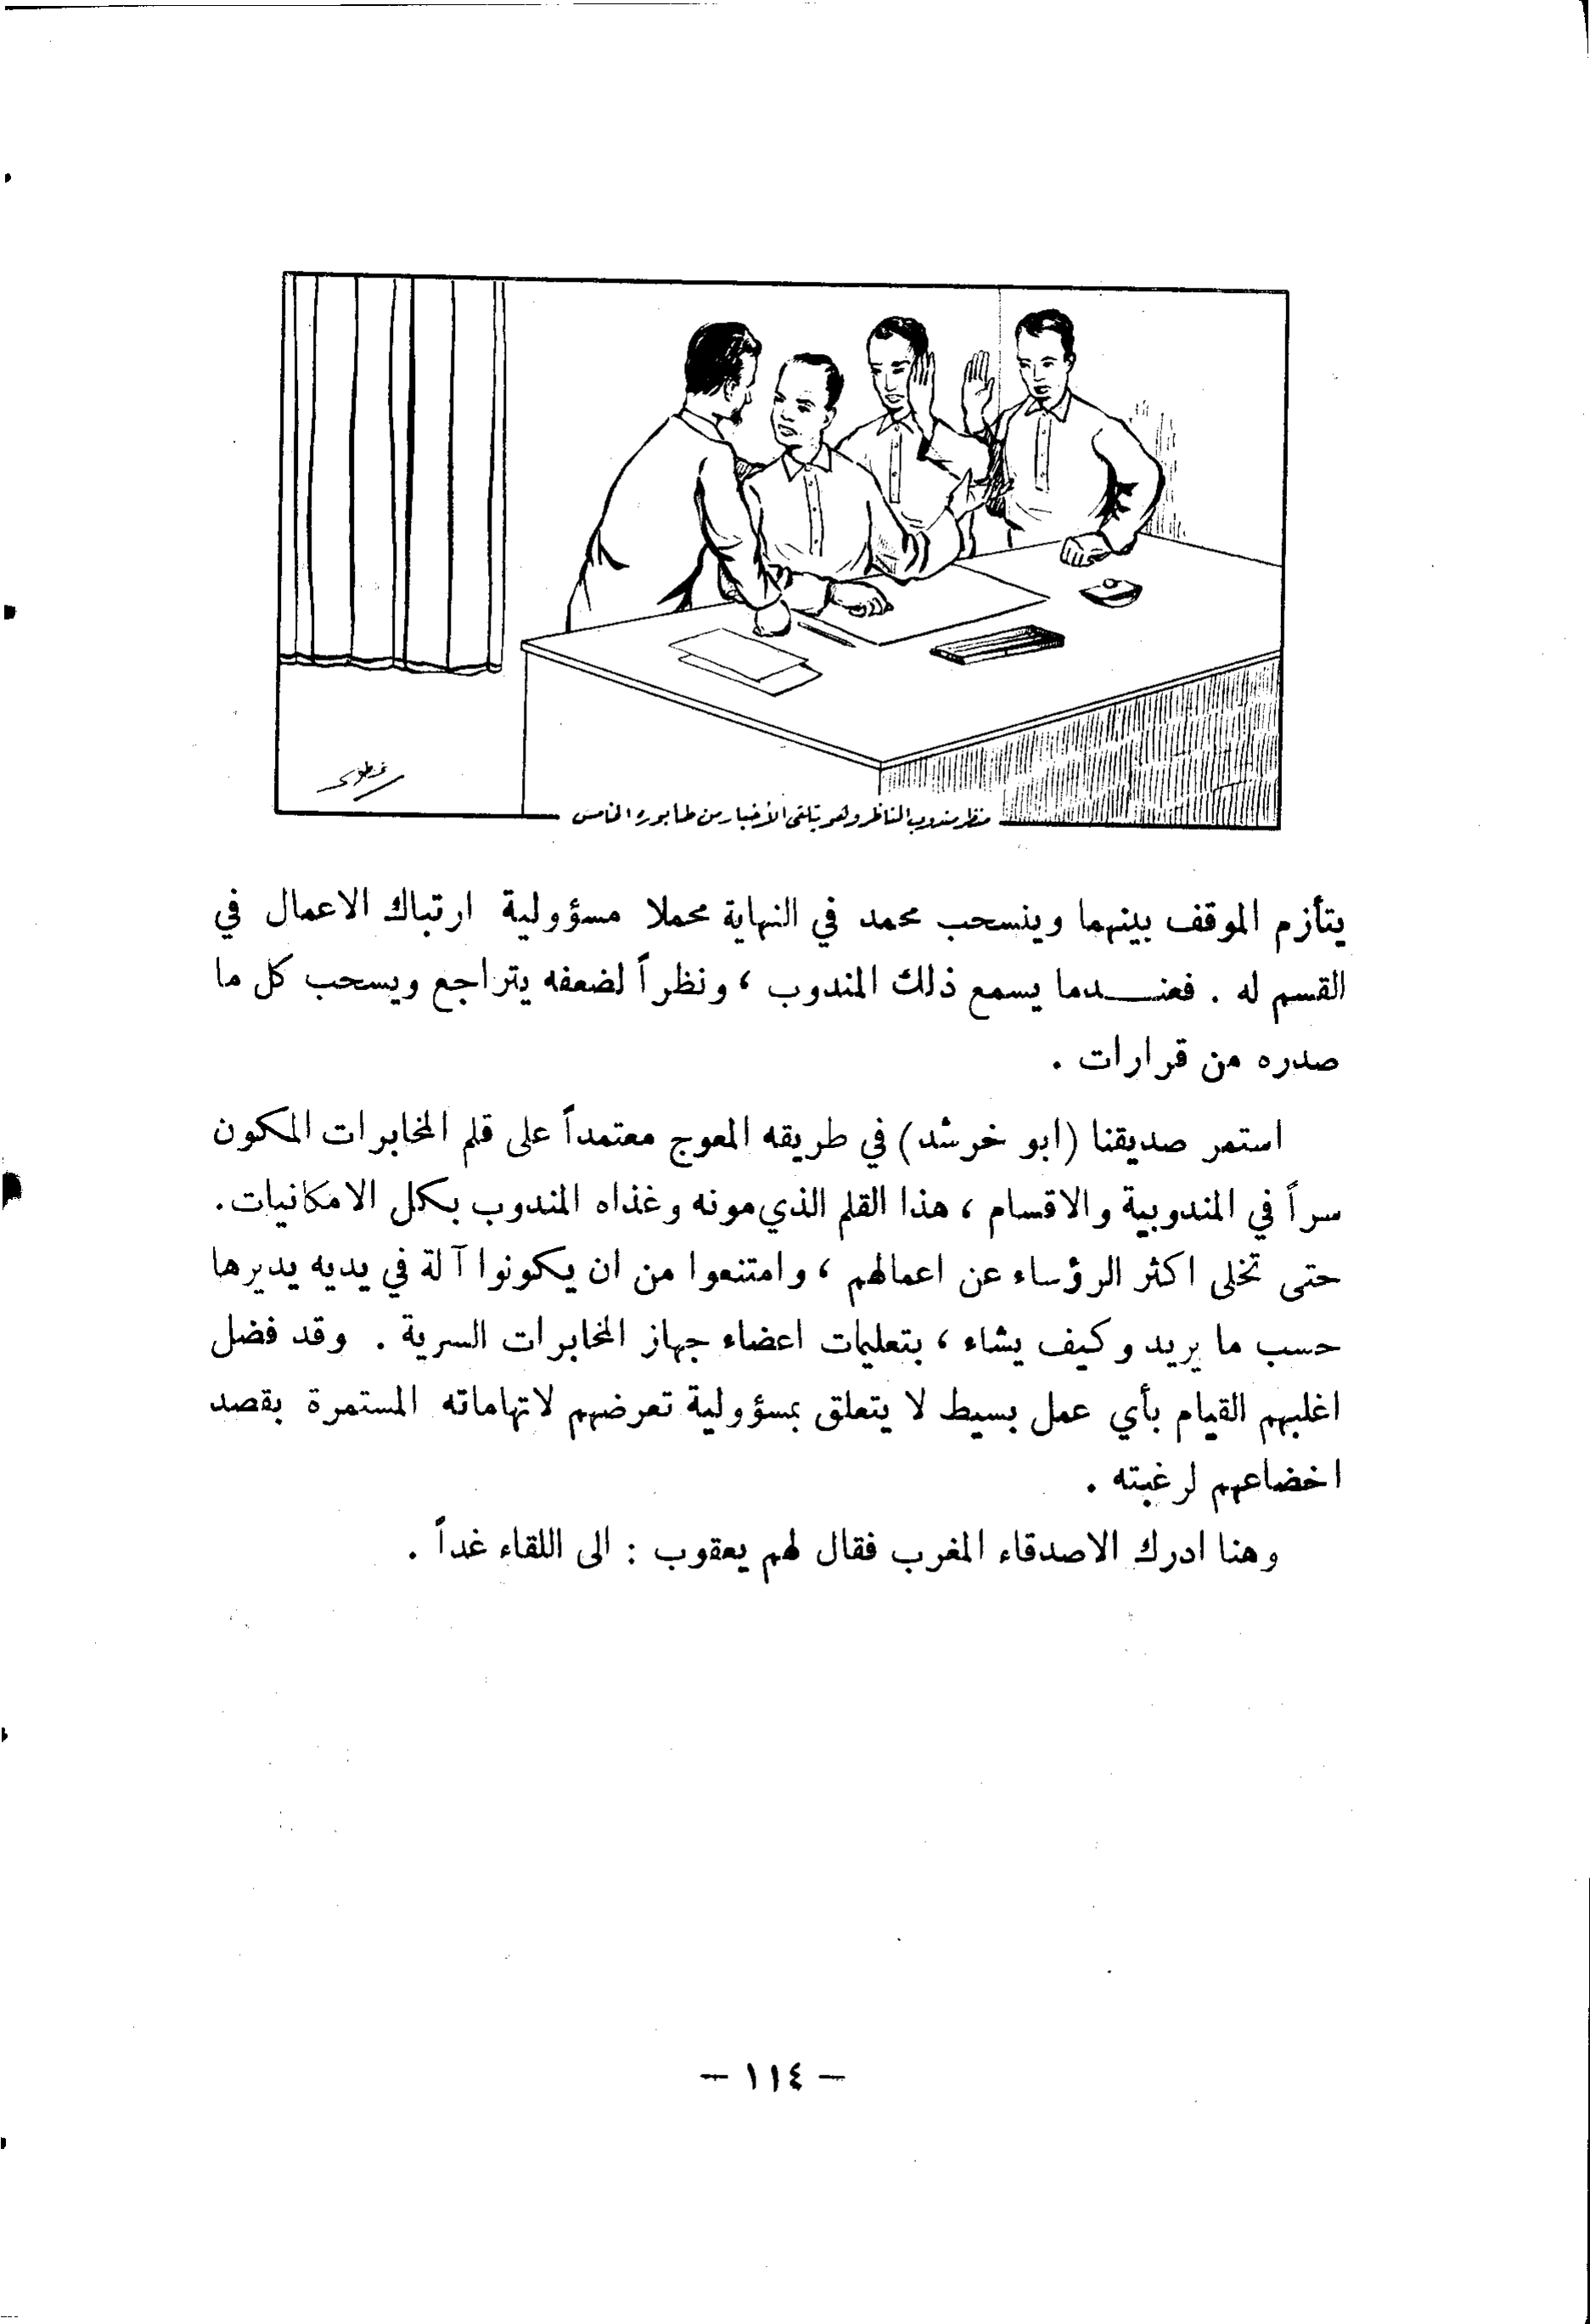 منظر مندوب الناظر وهو يتلقى الأخبار من طابوره الخامس
يتأزم الموقف بينهما وينسحب محمد في النهاية محملا مسؤولية ارتباك الاعمال في
القسم له . فعنـــدما يسمع ذلك المندوب ، ونظراً لضعفه يتراجع ويسحب كل ما
صدره من قرارات .
استمر صديقنا (ابو خرشد) في طريقه المعوج معتمداً على قلم المخابرات المكون
سراً في المندوبية والاقسام ، هذا القلم الذي مونه وغذاه المندوب بكل الامكانيات.
حتى تخلى اكثر الرؤساء عن اعمالهم ، وامتنعوا من ان يكونوا آلة في يديه يديرها
حسب ما يريد وكيف يشاء ، بتعليمات اعضاء جهاز المخابرات السرية . وقد فضل
اغلبهم القيام بأي عمل بسيط لا يتعلق بمسؤولية تعرضهم لاتهاماته المستمرة بقصد
اخضاعهم لرغبته .
وهنا ادرك الاصدقاء المغرب فقال لهم يعقوب : الى اللقاء غداً .
– ١١٤ –